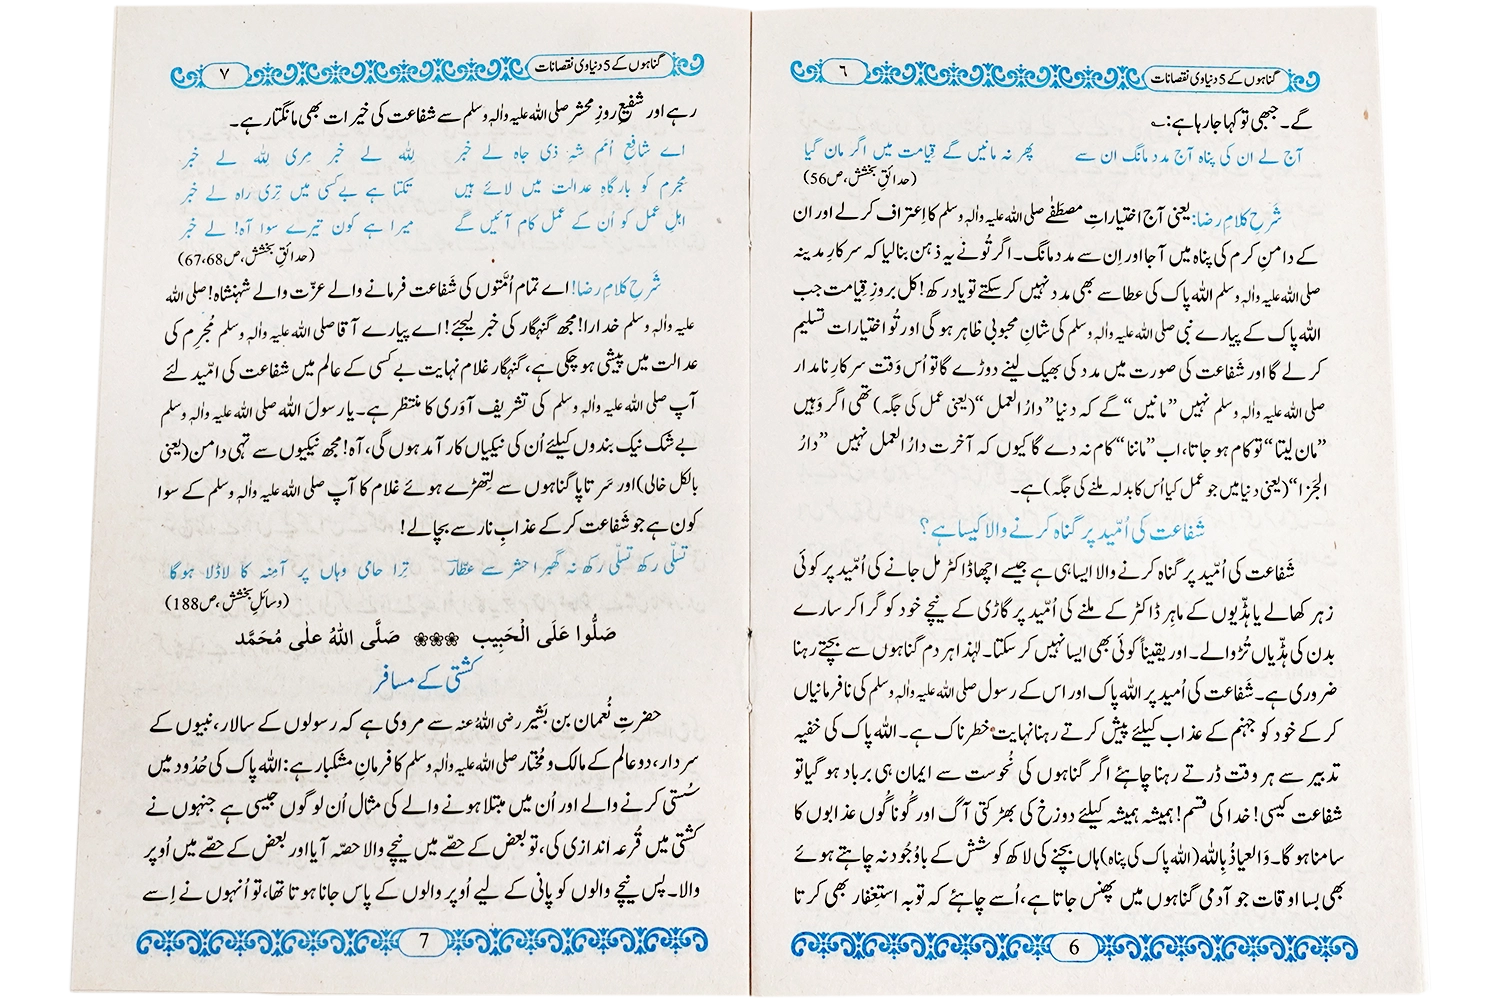 گناہوں کے 5 دنیاوی نقصانات
٦
گے۔ جبھی تو کہا جا رہا ہے:
آج لے ان کی پناہ آج مدد مانگ ان سے پھر نہ مانیں گے قیامت میں اگر مان گیا
(حدائقِ بخشش، ص56)
شَرحِ کلامِ رضا: یعنی آج اختیاراتِ مصطَفٰے صلی اللہ علیہ واٰلہٖ وسلم کا اِعتراف کر لے اور ان
کے دامنِ کرم کی پناہ میں آجا اور اِن سے مدد مانگ۔ اگر تُو نے یہ ذہن بنا لیا کہ سرکارِ مدینہ
صلی اللہ علیہ واٰلہٖ وسلم اللہ پاک کی عطا سے بھی مدد نہیں کر سکتے تو یاد رکھ! کل بروزِ قِیامت جب
اللہ پاک کے پیارے نبی صلی اللہ علیہ واٰلہٖ وسلم کی شانِ محبوبی ظاہر ہو گی اور تُو اختیارات تسلیم
کر لے گا اور شَفاعت کی صورت میں مدد کی بھیک لینے دوڑے گا تو اُس وَقت سرکارِ نامدار
صلی اللہ علیہ واٰلہٖ وسلم نہیں “مانیں” گے کہ دنیا “دارُ العمل” (یعنی عمل کی جگہ) تھی اگر وَہیں
“مان لیتا” تو کام ہو جاتا، اب “ماننا” کام نہ دے گا کیوں کہ آخرت دارُ العمل نہیں “دارُ
الجَزا” (یعنی دنیا میں جو عمل کیا اُس کا بدلہ ملنے کی جگہ) ہے۔
شَفاعت کی اُمّید پر گناہ کرنے والا کیسا ہے؟
شَفاعت کی اُمّید پر گناہ کرنے والا ایسا ہی ہے جیسے اچھا ڈاکٹر مل جانے کی اُمّید پر کوئی
زہر کھالے یا ہڈّیوں کے ماہِر ڈاکٹر کے ملنے کی اُمّید پر گاڑی کے نیچے خود کو گرا کر سارے
بدن کی ہڈّیاں تڑوالے۔ اور یقیناً کوئی بھی ایسا نہیں کر سکتا۔ لہٰذا ہر دم گناہوں سے بچتے رہنا
ضروری ہے۔ شَفاعت کی اُمید پر اللہ پاک اور اس کے رسول صلی اللہ علیہ واٰلہٖ وسلم کی نافرمانیاں
کر کے خود کو جہنم کے عذاب کیلئے پیش کرتے رہنا نہایت خطرناک ہے۔ اللہ پاک کی خفیہ
تدبیر سے ہر وقت ڈرتے رہنا چاہئے اگر گناہوں کی نُحوست سے ایمان ہی برباد ہو گیا تو
شفاعت کیسی! خدا کی قسم! ہمیشہ ہمیشہ کیلئے دوزخ کی بھڑکتی آگ اور گُوناگُوں عذابوں کا
سامنا ہو گا۔ وَالعیاذُ بِاللہ (اللہ پاک کی پناہ) ہاں بچنے کی لاکھ کوشش کے باوُجُود نہ چاہتے ہوئے
بھی بسا اوقات جو آدمی گناہوں میں پھنس جاتا ہے، اُسے چاہئے کہ توبہ استغفار بھی کرتا
6
گناہوں کے 5 دنیاوی نقصانات
٧
رہے اور شفیعِ روزِ محشر صلی اللہ علیہ واٰلہٖ وسلم سے شفاعت کی خیرات بھی مانگتا رہے۔
اے شافعِ اُمَم شہِ ذی جاہ لے خبر لِلّٰہ لے خبر مِری لِلّٰہ لے خبر
مجرم کو بارگاہِ عدالت میں لائے ہیں تکتا ہے بے کسی میں تِری راہ لے خبر
اہلِ عمل کو اُن کے عمل کام آئیں گے میرا ہے کون تیرے سوا آہ! لے خبر
(حدائقِ بخشش، ص67،68)
شَرحِ کلامِ رضا! اے تمام اُمَّتوں کی شَفاعت فرمانے والے عزّت والے شہنشاہ! صلی اللہ
علیہ واٰلہٖ وسلم خدارا! مجھ گنہگار کی خبر لیجئے! اے پیارے آقا صلی اللہ علیہ واٰلہٖ وسلم مُجرِم کی
عدالت میں پیشی ہو چکی ہے، گنہگار غلام نہایت بے کسی کے عالم میں شفاعت کی امّید لئے
آپ صلی اللہ علیہ واٰلہٖ وسلم کی تشریف آوَری کا منتظر ہے۔ یا رسولَ اللہ صلی اللہ علیہ واٰلہٖ وسلم
بے شک نیک بندوں کیلئے اُن کی نیکیاں کارآمد ہوں گی، آہ! مجھ نیکیوں سے تہی دامن (یعنی
بالکل خالی) اور سَر تا پا گناہوں سے لِتھڑے ہوئے غلام کا آپ صلی اللہ علیہ واٰلہٖ وسلم کے سوا
کون ہے جو شَفاعت کر کے عذابِ نار سے بچا لے!
تسلّی رکھ تسلّی رکھ نہ گھبرا حشر سے عطّارؔ تِرا حامی وہاں پر آمِنہ کا لاڈلا ہوگا
(وسائلِ بخشش، ص188)
صَلُّوا عَلَى الْحَبِيب ❀❀❀ صَلَّى اللهُ علٰى مُحَمَّد
کشتی کے مسافر
حضرتِ نُعمان بن بَشیر رضی اللہُ عنہ سے مروی ہے کہ رسولوں کے سالار، نبیوں کے
سردار، دو عالم کے مالک و مُختار صلی اللہ علیہ واٰلہٖ وسلم کا فرمانِ مشکبار ہے: اللہ پاک کی حُدُود میں
سُستی کرنے والے اور اُن میں مبتلا ہونے والے کی مثال اُن لوگوں جیسی ہے جنہوں نے
کشتی میں قُرعہ اندازی کی، تو بعض کے حصّے میں نیچے والا حصّہ آیا اور بعض کے حصّے میں اُوپر
والا۔ پس نیچے والوں کو پانی کے لیے اُوپر والوں کے پاس جانا ہوتا تھا، تو اُنہوں نے اِسے
7